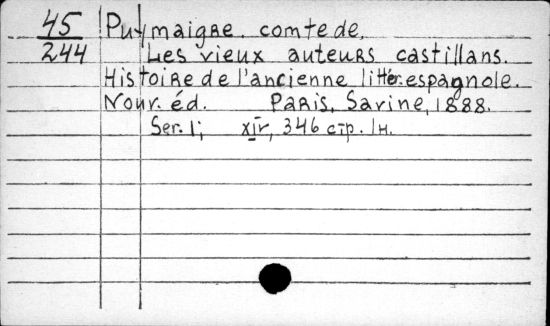 45
244
Puymaigre, comte de,
Les vieux auteurs castillans.
Histoire de l'ancienne littér. espagnole.
Nouv. éd. Paris, Savine, 1888.
Ser. 1; XIV, 346 стр. 1н.